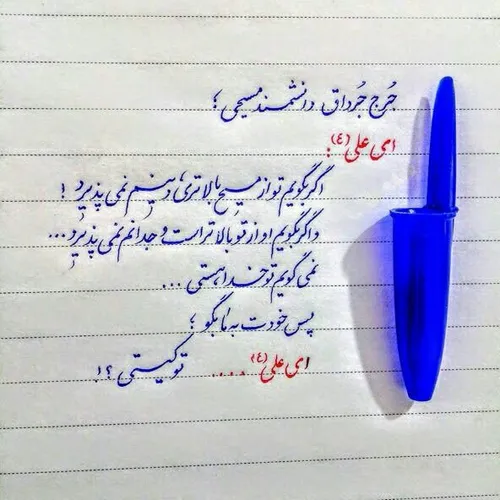 جُرج جُرداق دانشمند مسیحی ؛
ای علی (ع):
اگر بگویم تو از مسیح بالاتری، دینم نمی پذیرد !
و اگر بگویم او از تو بالاتر است وجدانم نمی پذیرد...
نمی گویم تو خدا هستی ...
پس خودت به ما بگو ؛
ای علی (ع) .... تو کیستی ؟!